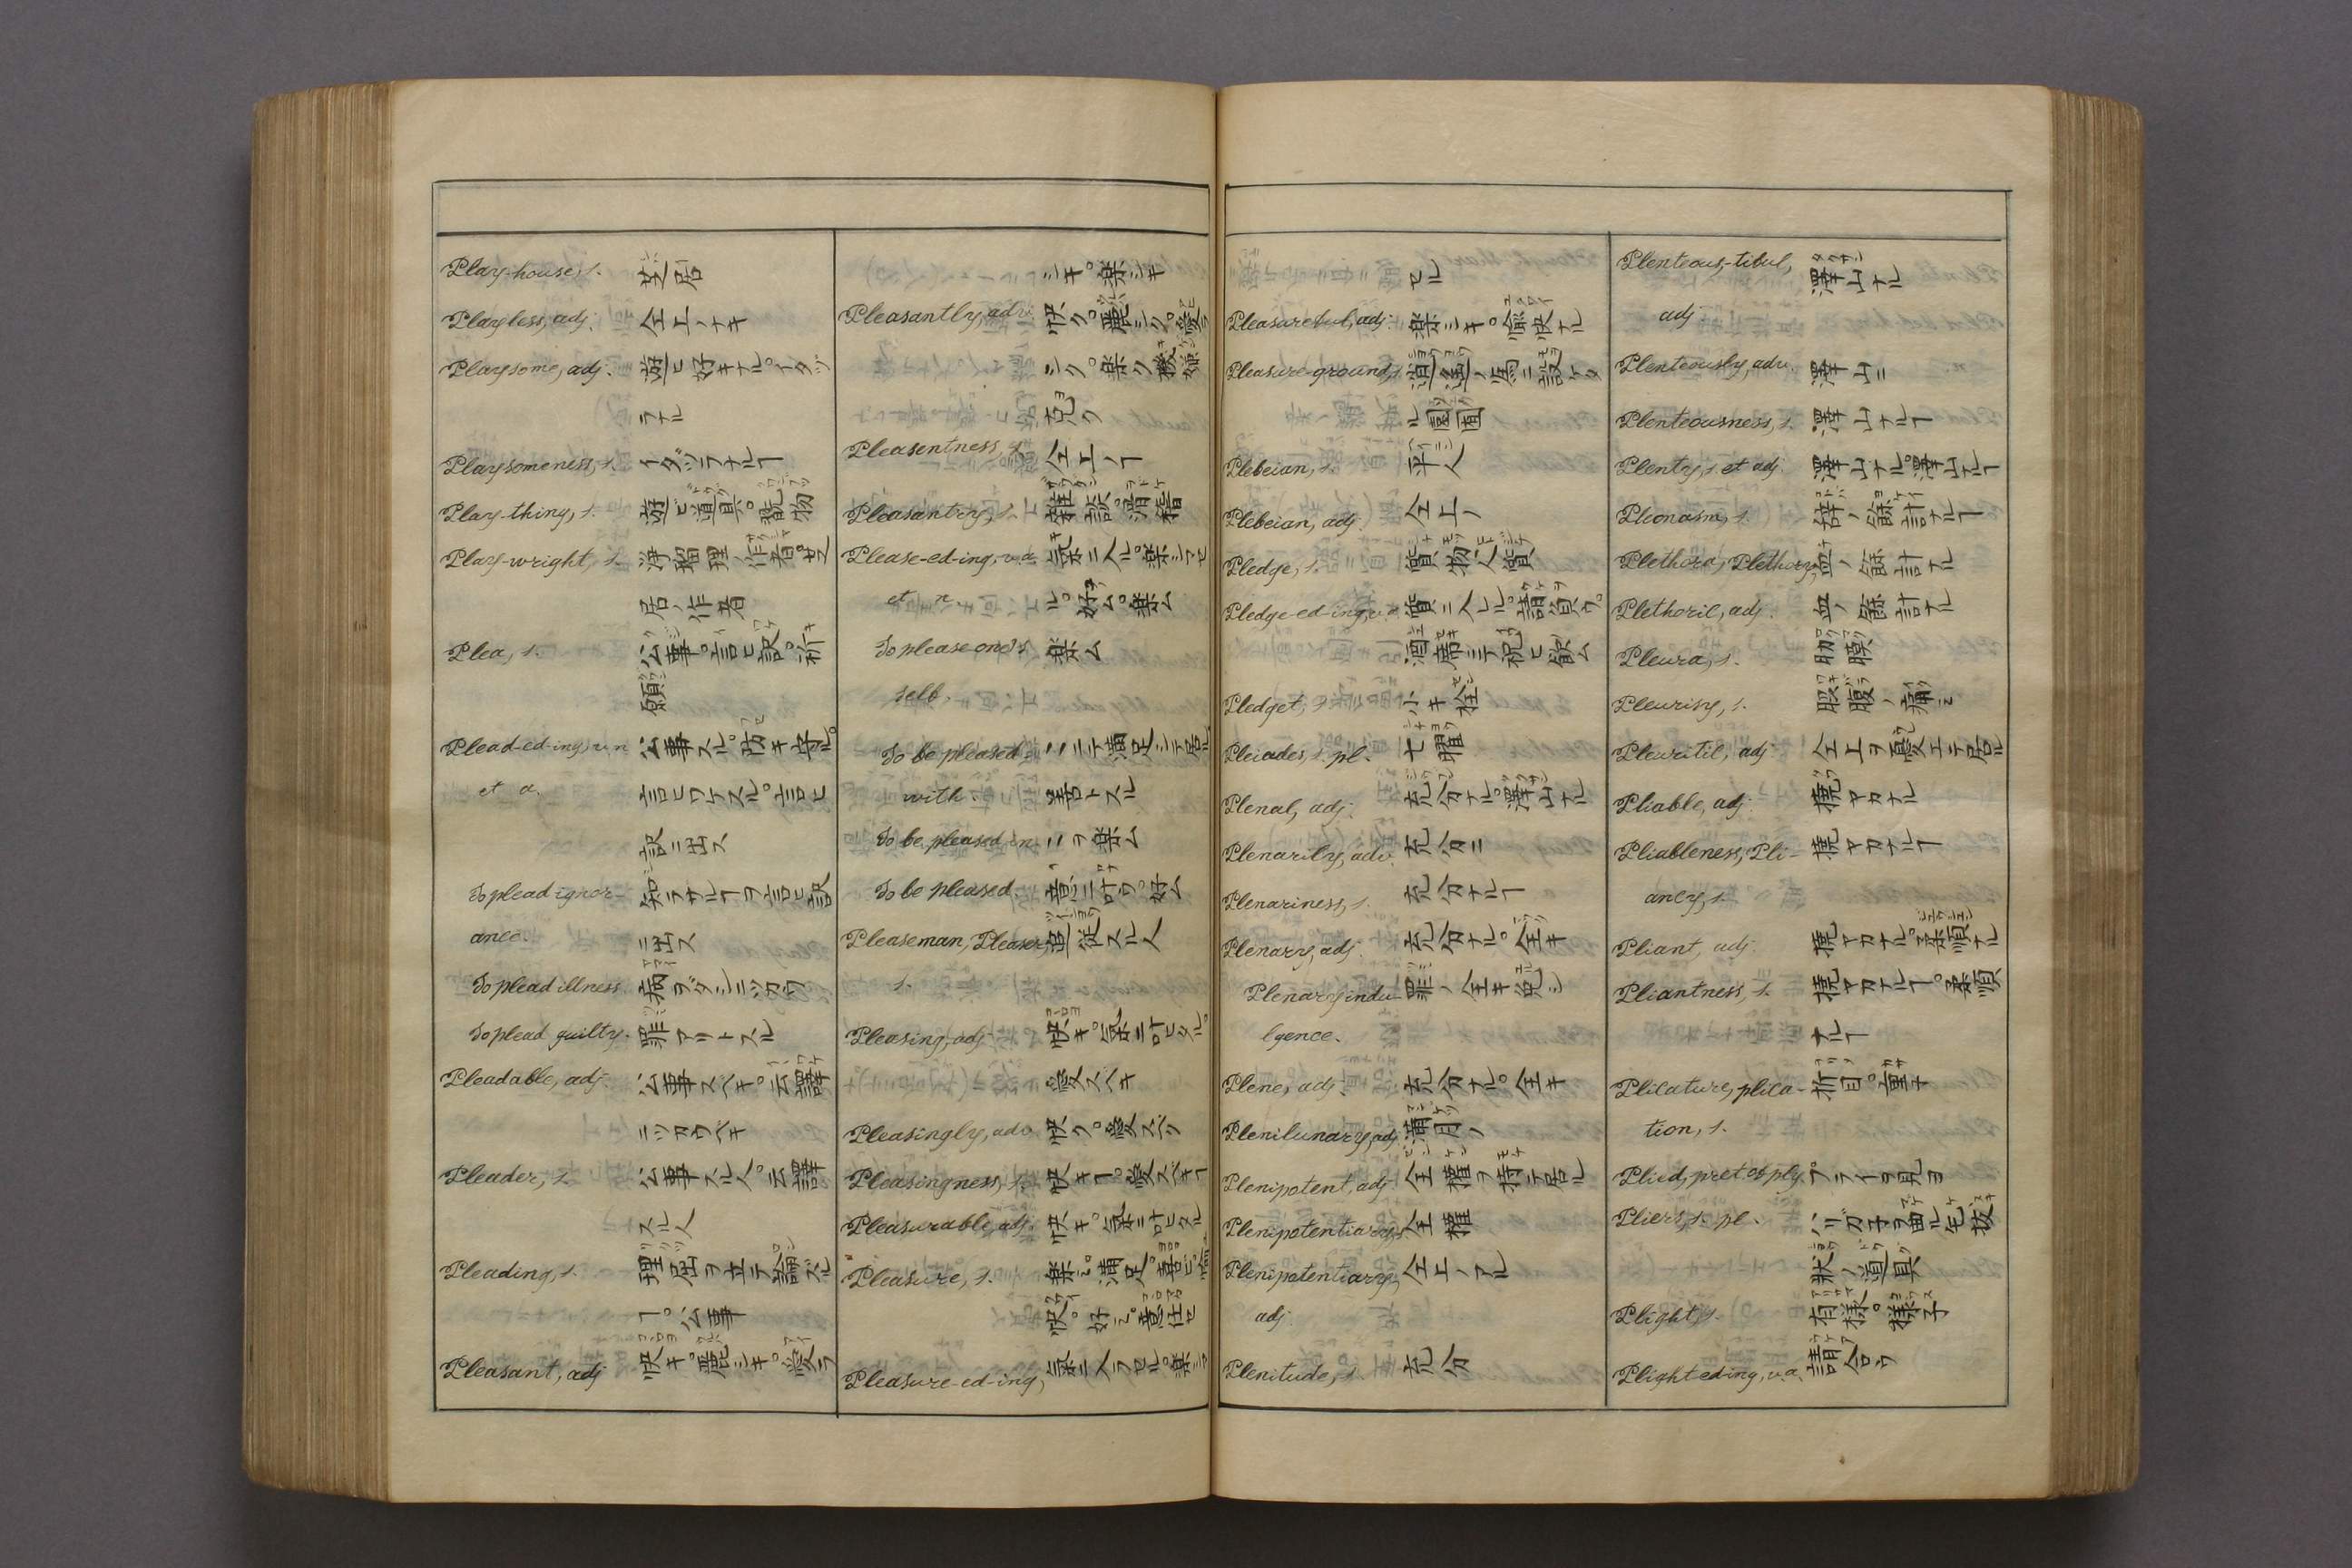 Play-house, s. 芝居
Playless, adj. 仝上ノナキ
Playsome, adj. 遊ヒ好キナル。イタヅ
ラナル
Playsomeness, s. イタヅラナルヿ
Play-thing, s. 遊ビ道具。翫物
Play-wright, s. 浄瑠理ノ作者。芝
居ノ作者
Plea, s. 公事。言ヒ訳。祈
願
Plead-ed-ing, v.n. 公事スル。防キ守ル。
et a. 言ヒワケスル。言ヒ
訳ニ出ス
To plead ignor- 知ラサルヿヲ言ヒ訳
ance. ニ出ス
To plead illness. 病ヲダシニツカウ
To plead guilty. 罪アリトスル
Pleadable, adj. 公事スベキ。云譯
ニツカウベキ
Pleader, s. 公事スル人。云譯
スル人
Pleading, s. 理屈ヲ立テ論ズル
ヿ。公事
Pleasant, adj 快キ。麗シキ。愛ラ
シキ。楽シキ
Pleasantly, adv. 快ク。麗シク。愛ラ
シク。楽ク機嫌
克ク
Pleasentness, s. 仝上ノヿ
Pleasantry, s. 雜談。滑稽
Please-ed-ing, v.a. 氣ニ入ル。楽シマセ
et n. ル。好ム。楽ム
To please one's 楽ム
self.
To be pleased ニテ満足シテ居ル
with. 善トスル
To be pleased in. ニヲ楽ム
To be pleased. 意ニ叶ウ。好ム
Pleaseman, Pleaser, 追従スル人
s.
Pleasing, adj 快キ。氣ニ叶ヒタル。
愛スベキ
Pleasingly, adv 快ク。愛スベク
Pleasingness, s. 快キヿ。愛スベキヿ
Pleasurable, adj. 快キ。氣ニ叶ヒタル
Pleasure, s. 楽ミ。満足。喜ビ。愉
快。好ミ。意任セ
Pleasure-ed-ing, 氣ニ入ラセル。楽シマ
セル
Pleasureful, adj. 楽シキ。愉快ナル
Pleasure-ground, s. 逍遥ノ為ニ設ケタ
ル園囿
Plebeian, s. 平人
Plebeian, adj. 仝上ノ
Pledge, s. 質物。人質
Pledge-ed-ing, v.a. 質ニ入ヒル。請負ヲ。
酒席ニテ祝ヒ飲ム
Pledget, s. 小キ栓
Pleiades, s. pl. 七曜
Plenal, adj. 充分ナル。澤山ナル
Plenarily, adv. 充分ニ
Plenariness, s. 充分ナルヿ
Plenary, adj. 充分ナル。全キ
Plenary indu- 罪ノ全キ免シ
lgence.
Plene, adj. 充分ナル。全キ
Plenilunary, adj. 満月ノ
Plenipotent, adj 全權ヲ持テ居ル
Plenipotentiary, s. 全權
Plenipotentiary, 仝上ノアル
adj.
Plenitude, s. 充分
Plenteous-tiful, 澤山ナル
adj
Plenteously, adv. 澤山ニ
Plenteousness, s. 澤山ナルヿ
Plenty, s. et adj. 澤山ナル。澤山ナルヿ
Pleonasm, s. 辞ノ餘計ナルヿ
Plethora, Plethory, 血ノ餘計ナル
Plethoric, adj. 血ノ餘計ナル
Pleura, s. 肋膜
Pleurisy, s. 腹ノ痛ミ
Pleuritic, adj 仝上ヲ憂エテ居ル
Pliable, adj. 撓マカナル
Pliableness, Pli- 撓マカナルヿ
ancy, s.
Pliant, adj. 撓マカナル。柔順ナル
Pliantness, s. 撓マカナルヿ。柔順
ナルヿ
Plicature, plica- 折目。重子
tion, s.
Plied, pret. of ply. プライヲ見ヨ
Pliers, s. pl. ハリガ子ヲ曲ル毛抜
状ノ道具
Plight, s. 有様。様子
Plight-ed-ing, v.a. 請合ウ